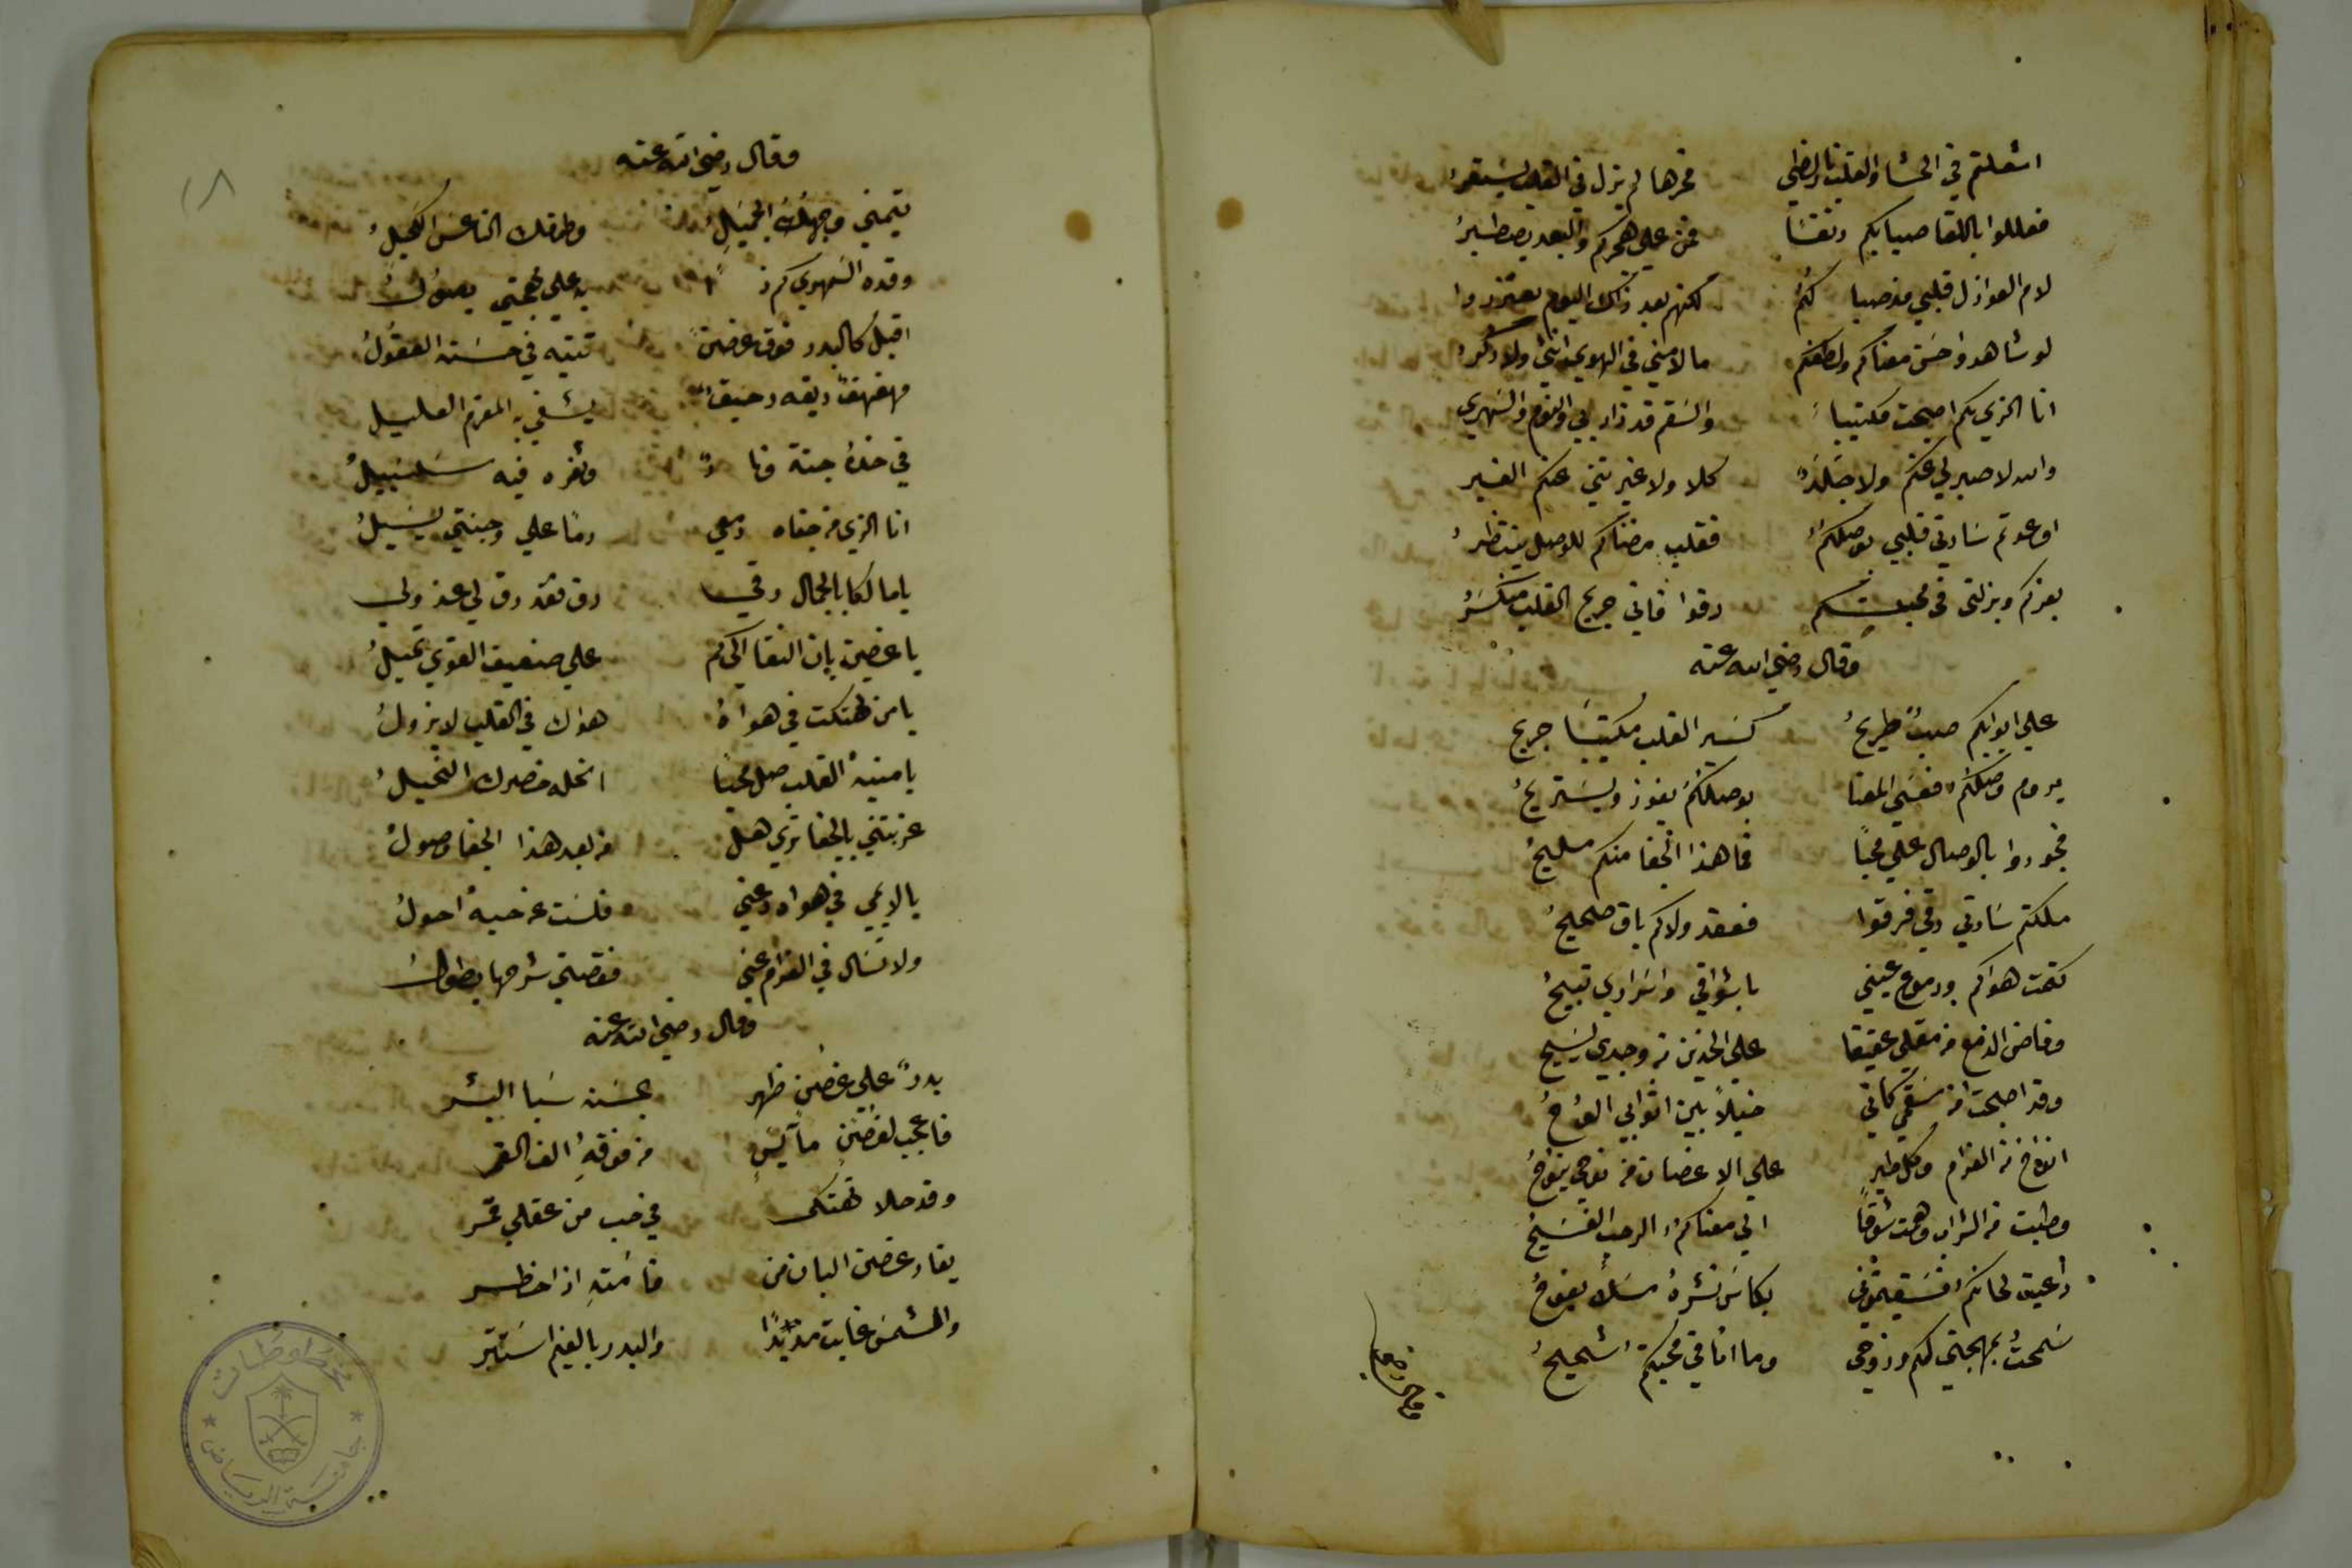 اشعلتم في الحشا والقلب نار لظي فحرها لم يزل في القلب يستعرُ
فعللوا باللقا صبا بكم دنفسًا فمن علي هجركم والبعد يصطبرُ
لام العواذل قلبي مذ صبا لكمُ لكنهم بعد ذاك اليوم يعتذروا
لو شاهدوا حسن معناكم ولطفكم ما لامني في الهوي انثي ولا ذكرُ
انا الذي بكم اصبحت مكتيبا والسقم قد زاد بي والنوح والسهري
والله لا صبر لي عنكم ولا جلدٌ كلا ولا غيرتني عنكم الغير
اوعدتم سادتي قلبي بوصلكمُ فقلب مضناكم للوصل ينتظرُ
بعزكم وبذلتي في محبتكم رقوا فاني جريح القلب منكسرُ
وقال رضي الله عنه
علي ابوابكم صبٌ طريحُ كسير القلب مكتيبًا جريح
يروم وصلكمُ فعسي المعنا بوصلكمُ يفوز ويستريحُ
فجودوا بالوصال علي محبًا فما هذا الجفا منكم مليحُ
ملكتم سادتي رقي فرقوا فعقد ولاكم باق صحيحُ
كتمت هواكم ودموع عيني باشواقي واسراري تبيحُ
وفاض الدمع من مقلي عقيقا علي الخدين من وجدي يسيحُ
وقد اصبحت من سقمي كاني خيلاً بين اثوابي الوحُ
انوح من الغرام وكل طيرٍ علي الاغصان من نوحي ينوحُ
وطبت من الشراب وهمت شوقًا الي معناكم الرحب الفسيحُ
دعيت لحانكم فسقيتموني بكاس نشره مسكٌ يفوحُ
سمحت بمهجتي لكم وروحي وما انا في محبتكم شحيحُ
١٨
وقال رضي الله عنه
تيمني وجهك الجميلُ وطرفك الناعس الكحيلُ
وقده السمهري كم ذا به علي مهجتي يصولُ
اقبل كالبدر فوق غصنٍ تتيه في حسنه العقولُ
مهفهفٌ ريقه رحيقٌ يشفي به المغرم العليل
في خده جنة ونارٌ وثغره فيه سلسبيلُ
انا الذي من جفاه دمعي دمًا علي وجنتي يسيلُ
يا مالكا بالجمال رقي رق فقد رق لي عذولي
يا غصن بان النقا الي كم علي ضعيف القوي تميلُ
يا من تهتكت في هواهُ هواك في القلب لا يزولُ
يا منية القلب صل محبًا انحله خصرك النحيلُ
عذبتني بالجفا تري هل من بعد هذا الجفا وصولُ
يا لايمي في هواه دعني فلست عن حبه احولُ
ولا تسال في الغرام عني فقصتي شرحها يطولُ
وقال رضي الله عنه
بدرٌ علي غصنٍ ظهر بحسنه سبا البشر
فاعجب لغصنٍ مآيسٍ من فوقهِ الف القمر
وقد حلا تهتكي في حب من عقلي قمر
يغار غصن البان من قامتهِ اذا خطر
والشمس غابت مذ بدًا والبدر بالغيم استتر
مخطوطات
جامعة الرياض